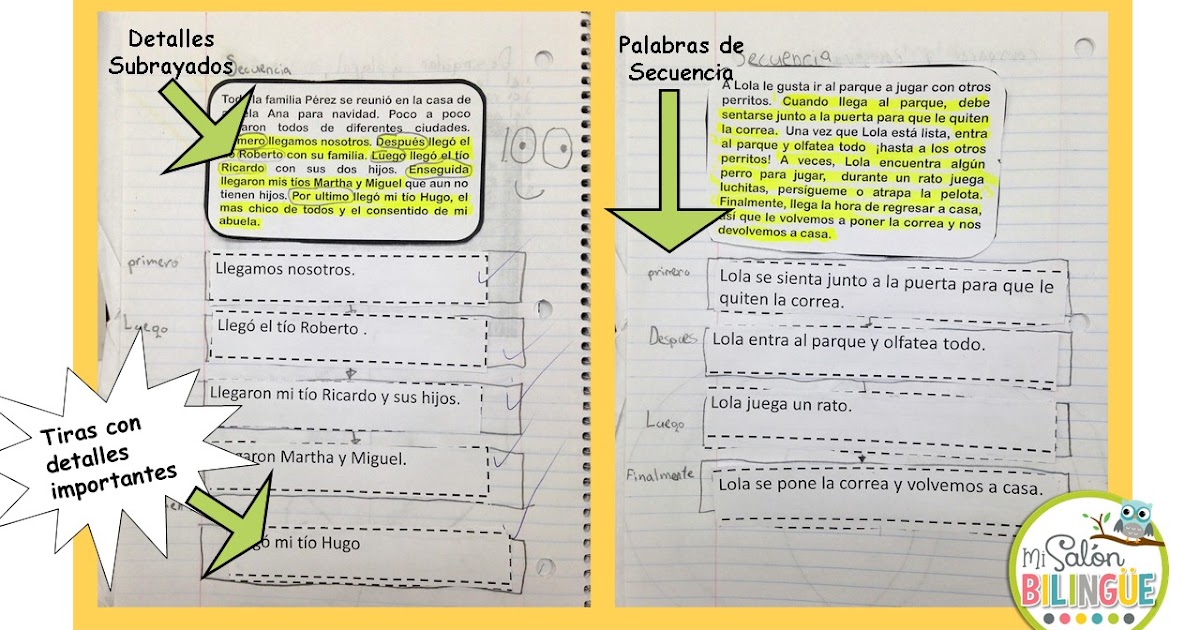 Detalles
Subrayados
Secuencia
la familia Pérez se reunió en la casa de
Ana para navidad. Poco a poco
todos de diferentes ciudades.
llegamos nosotros. Después llegó el
Roberto con su familia. Luego llegó el tío
Ricardo con sus dos hijos. Enseguida
llegaron mis tíos Martha y Miguel que aun no
tienen hijos. Por ultimo llegó mi tío Hugo, el
mas chico de todos y el consentido de mi
abuela.
100
primero
Llegamos nosotros.
Luego
Llegó el tío Roberto .
Llegaron mi tío Ricardo y sus hijos.
Martha y Miguel.
mi tío Hugo
Tiras con
detalles
importantes
Palabras de
Secuencia
Secuencia
A Lola le gusta ir al parque a jugar con otros
perritos. Cuando llega al parque, debe
sentarse junto a la puerta para que le quiten
la correa. Una vez que Lola está lista, entra
al parque y olfatea todo ¡hasta a los otros
perritos! A veces, Lola encuentra algún
perro para jugar, durante un rato juega
luchitas, persígueme o atrapa la pelota.
Finalmente, llega la hora de regresar a casa,
así que le volvemos a poner la correa y nos
devolvemos a casa.
primero
Lola se sienta junto a la puerta para que le
quiten la correa.
Después
Lola entra al parque y olfatea todo.
Luego
Lola juega un rato.
Finalmente
Lola se pone la correa y volvemos a casa.
Mi Salón
BILINGÜE